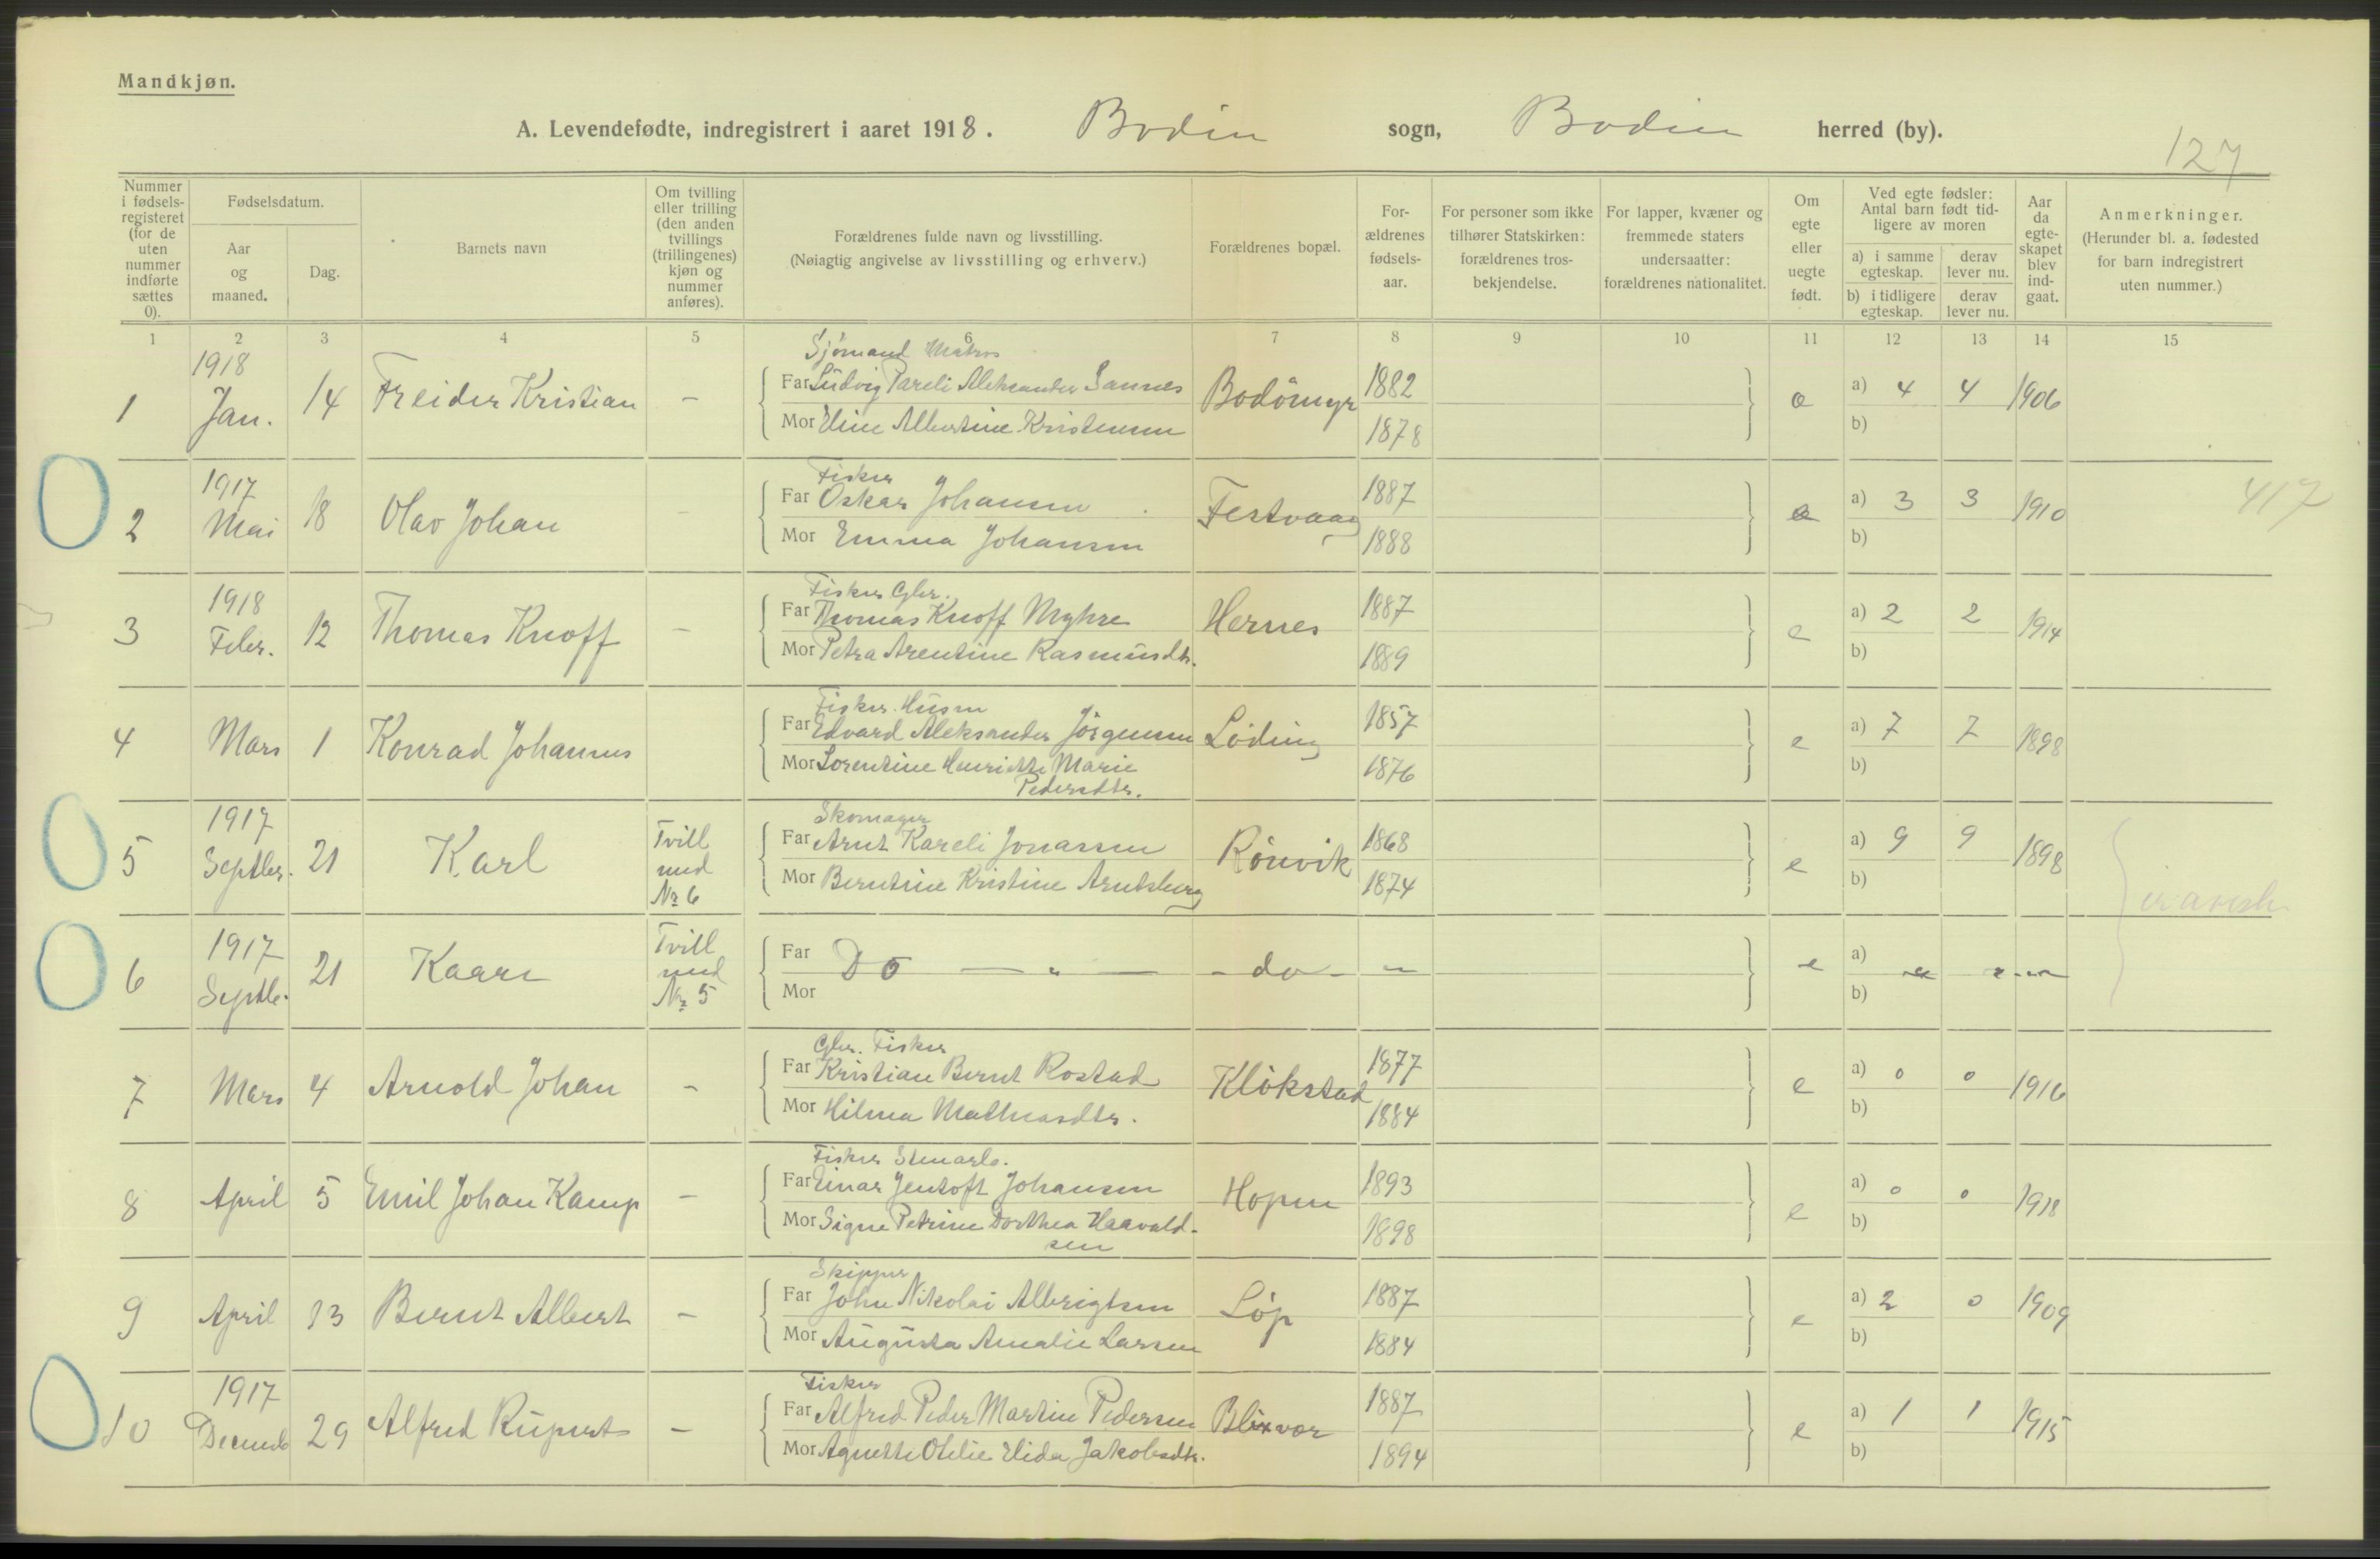 Mandkjøn.
A. Levendefødte, indregistrert i aaret 1918. Bodin sogn, Bodin herred (by).
127
Nummer i fødselsregisteret (for de uten nummer indførte sættes 0).
Fødselsdatum.
Aar og maaned.
Dag.
Barnets navn
Om tvilling eller trilling (den anden tvillings (trillingenes) kjøn og nummer anføres).
Forældrenes fulde navn og livsstilling.
(Nøiagtig angivelse av livsstilling og erhverv.)
Forældrenes bopæl.
Forældrenes fødselsaar.
For personer som ikke tilhører Statskirken: forældrenes trosbekjendelse.
For lapper, kvæner og fremmede staters undersaatter: forældrenes nationalitet.
Om egte eller uegte født.
Ved egte fødsler: Antal barn født tidligere av moren
a) i samme egteskap.
derav lever nu.
b) i tidligere egteskap.
derav lever nu.
Aar da egteskapet blev indgaat.
Anmerkninger.
(Herunder bl. a. fødested for barn indregistrert uten nummer.)
1 2 3 4 5 6 7 8 9 10 11 12 13 14 15
1 1918 Jan. 14 Freider Kristian –
Sjömand Matros
Far Ludvig Pareli Aleksander Sannes Bodömyr 1882 e a) 4 4 1906
Mor Eline Albertine Kristensen 1878 b)
2 1917 Mai 18 Olav Johan –
Fisker
Far Oskar Johansen Festvaag 1887 e a) 3 3 1910 417
Mor Emma Johansen 1888 b)
3 1918 Febr. 12 Thomas Knoff –
Fisker Gbr.
Far Thomas Knoff Myhre Hernes 1887 e a) 2 2 1914
Mor Petra Arentine Rasmusdtr. 1889 b)
4 Mars 1 Konrad Johannes
Fisker Husm
Far Edvard Aleksander Jörgensen Löding 1857 e a) 7 7 1898
Mor Lorentine Henriette Marie Pedersdtr. 1876 b)
5 1917 Septbr. 21 Karl Tvill med No 6
Skomager
Far Arnt Kareli Jonassen Rönvik 1868 e a) 9 9 1898
Mor Berntine Kristine Arntsberg 1874 b)
6 1917 Septbr. 21 Kaare Tvill med No 5
Far Do — " — - do - " e a) " " "
Mor b)
7 Mars 4 Arnold Johan –
Gbr. Fisker
Far Kristian Bernt Rostad Klökstad 1877 e a) 0 0 1916
Mor Hilma Mathiasdtr. 1884 b)
8 April 5 Emil Johan Kamp –
Fisker Stenarb.
Far Einar Jentoft Johansen Hopen 1893 e a) 0 0 1918
Mor Signe Petrine Dorthea Haavaldsen 1898 b)
9 April 13 Bernt Albert –
Skipper
Far John Nikolai Albrigtsen Löp 1887 e a) 2 0 1909
Mor Augusta Amalie Larsen 1884 b)
10 1917 Decemb 29 Alfred Rupert –
Fisker
Far Alfred Peder Martin Pedersen Blixvær 1887 e a) 1 1 1915
Mor Agnette Otelie Elida Jakobsdtr. 1894 b)